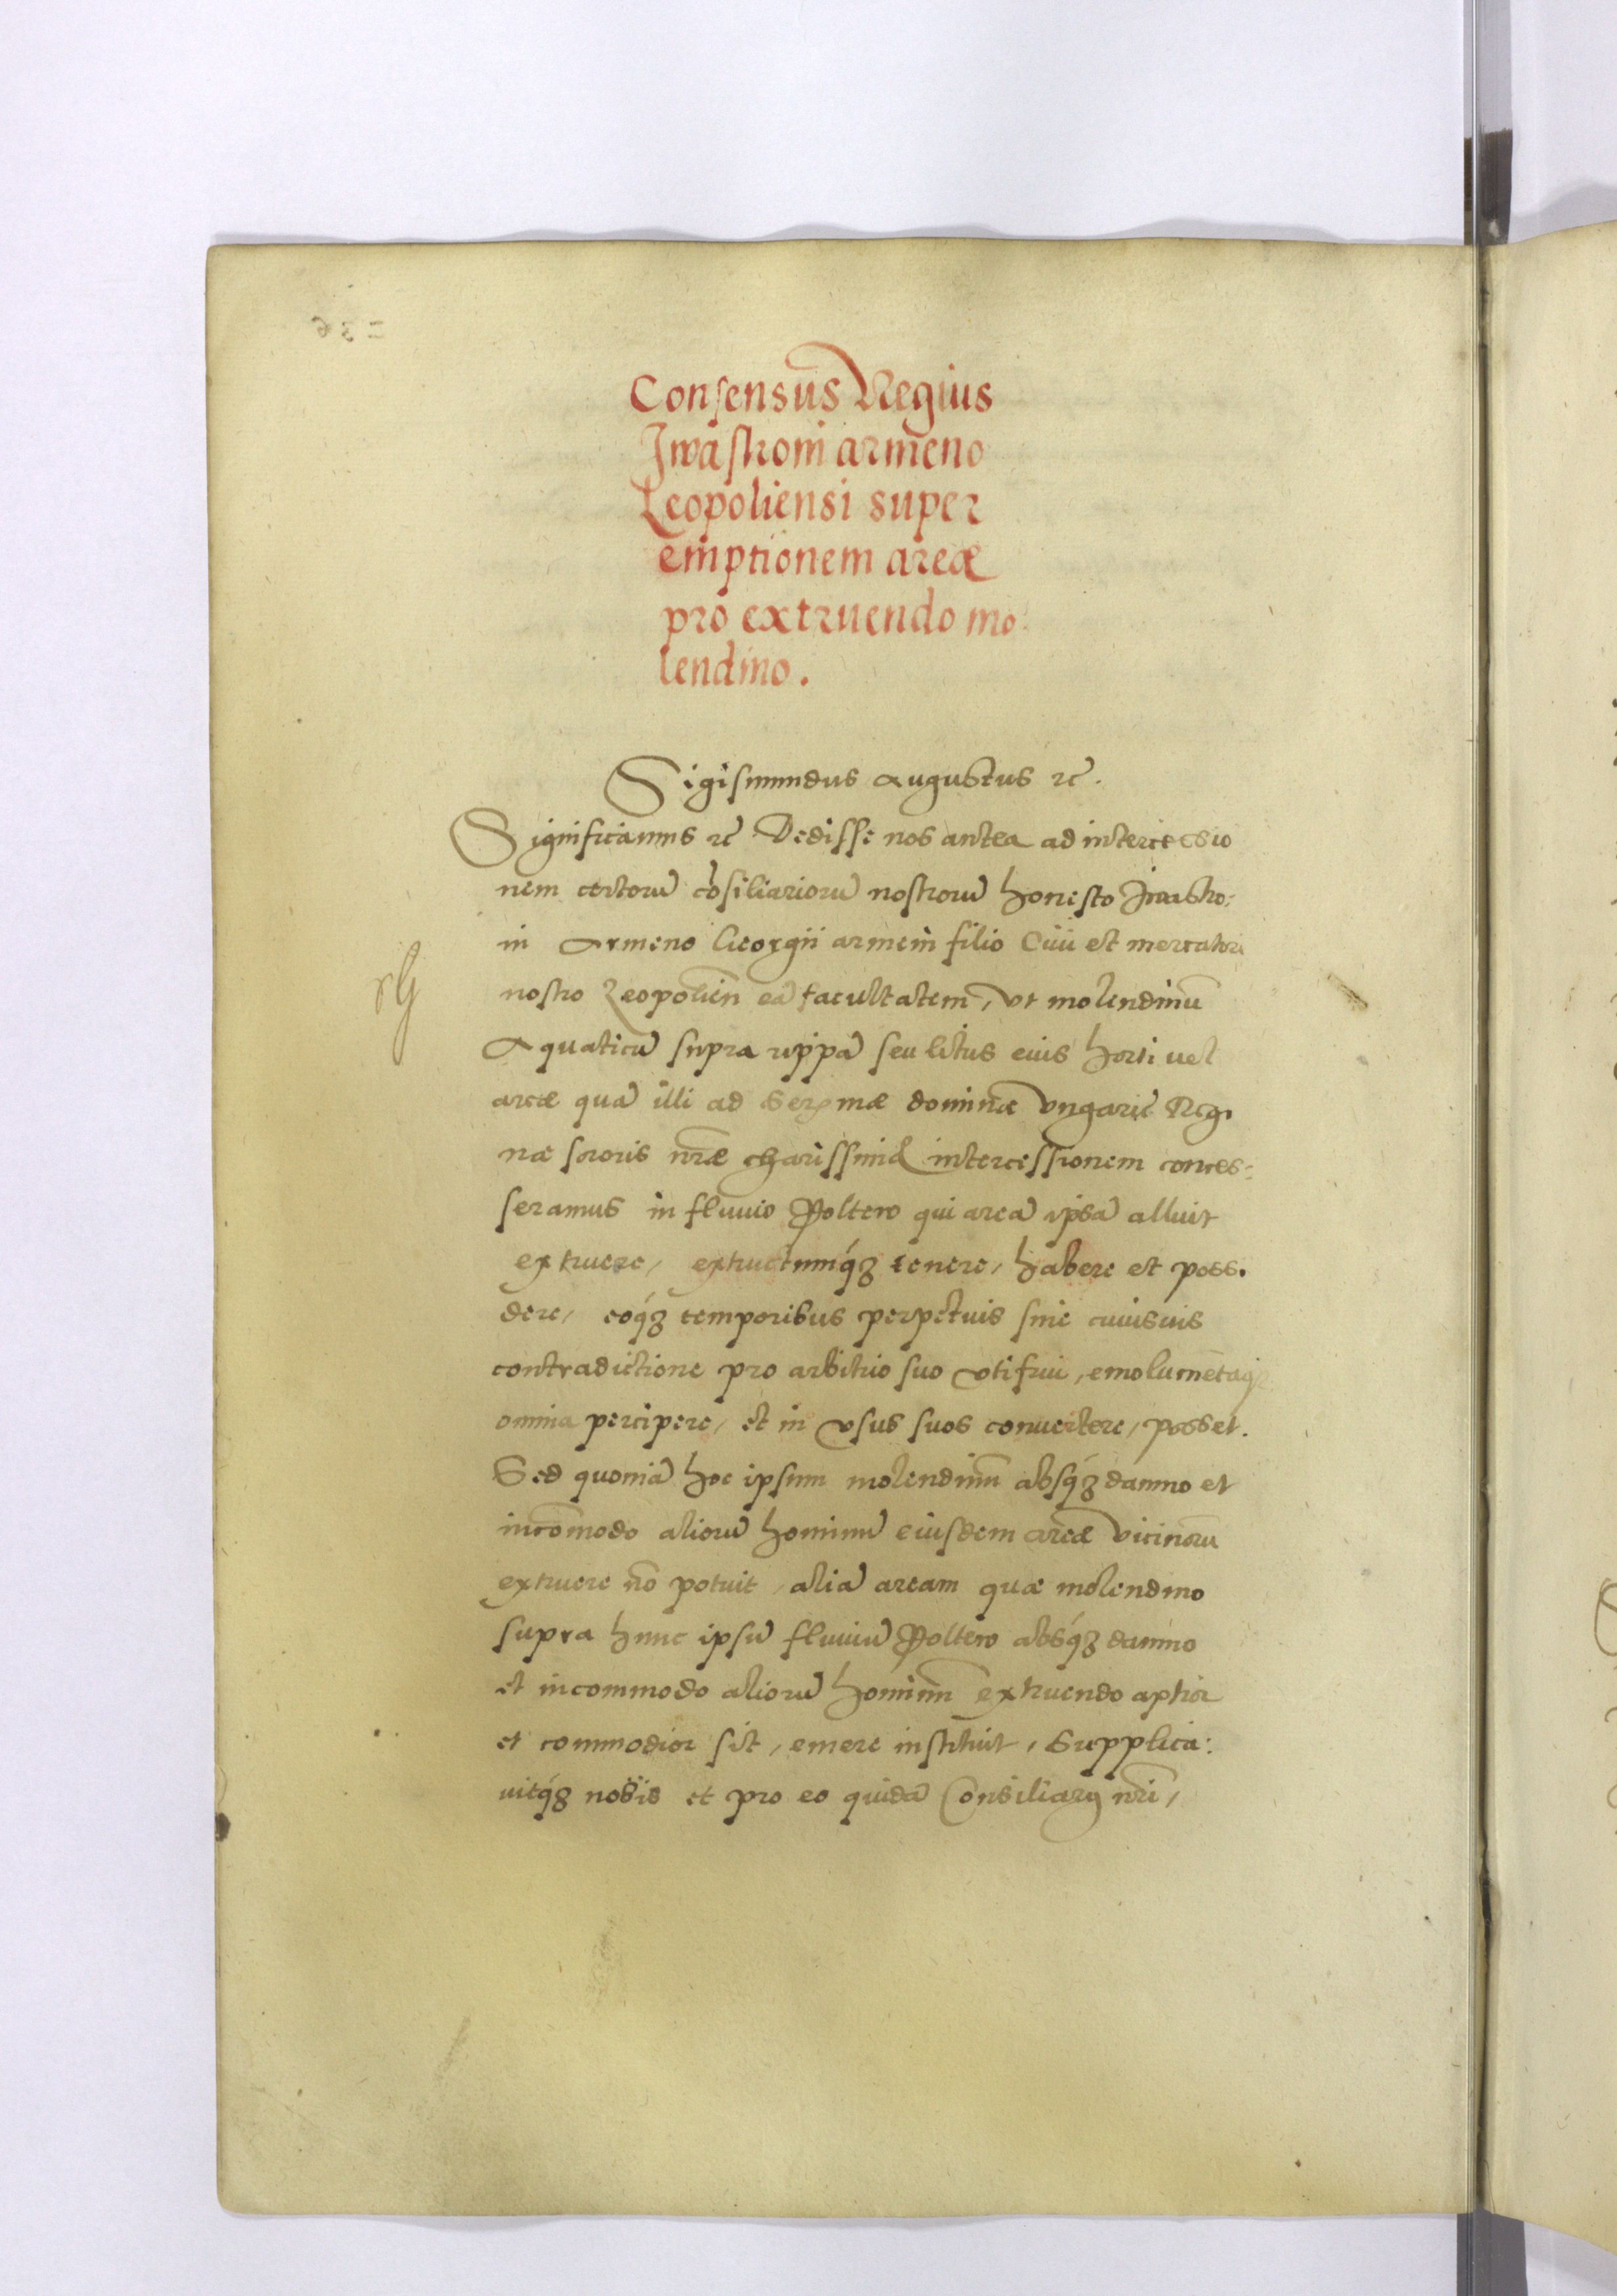 Consensus Regius
Jwastroni armeno
Leopoliensi super
emptionem areæ
pro extruendo mo
lendino.
Sigismundus Augustus ꝛc̃.
Significamus ꝛc̃ Dedisse nos antea ad intercessio
nem certorũ cõsiliariorũ nostrorũ honesto Jwastro:
ni Armeno Georgii armeni filio Ciui et mercatori
nostro Leopolien̄ eã facultatem, vt molendinũ
Aquaticũ supra rippã seu litus eius horti vel
areæ quã illi ad Serᵐæ dominæ Vngariæ Regi
næ sororis nr̃æ charissimæ intercessionem conces-
seramus in fluuio Poltew qui areã ipsã alluit
extruere, extructumqꝫ tenere, habere et possi
dere, eoqꝫ temporibus perpetuis sine cuiusuis
contradictione pro arbitrio suo vti frui, emolumẽtaqꝫ
omnia percipere, et in vsus suos conuertere, posset.
Sed quoniã hoc ipsum molendinũ absqꝫ damno et
incõmodo aliorũ hominũ eiusdem areæ vicinorũ
extruere nõ potuit, aliã aream quæ molendino
supra hunc ipsũ fluuiũ Poltew absqꝫ damno
et incommodo aliorũ hominũ extruendo aptior
et commodior sit, emere instituit, Supplica:
uitqꝫ nobis et pro eo quidã Consiliarij nr̃i,